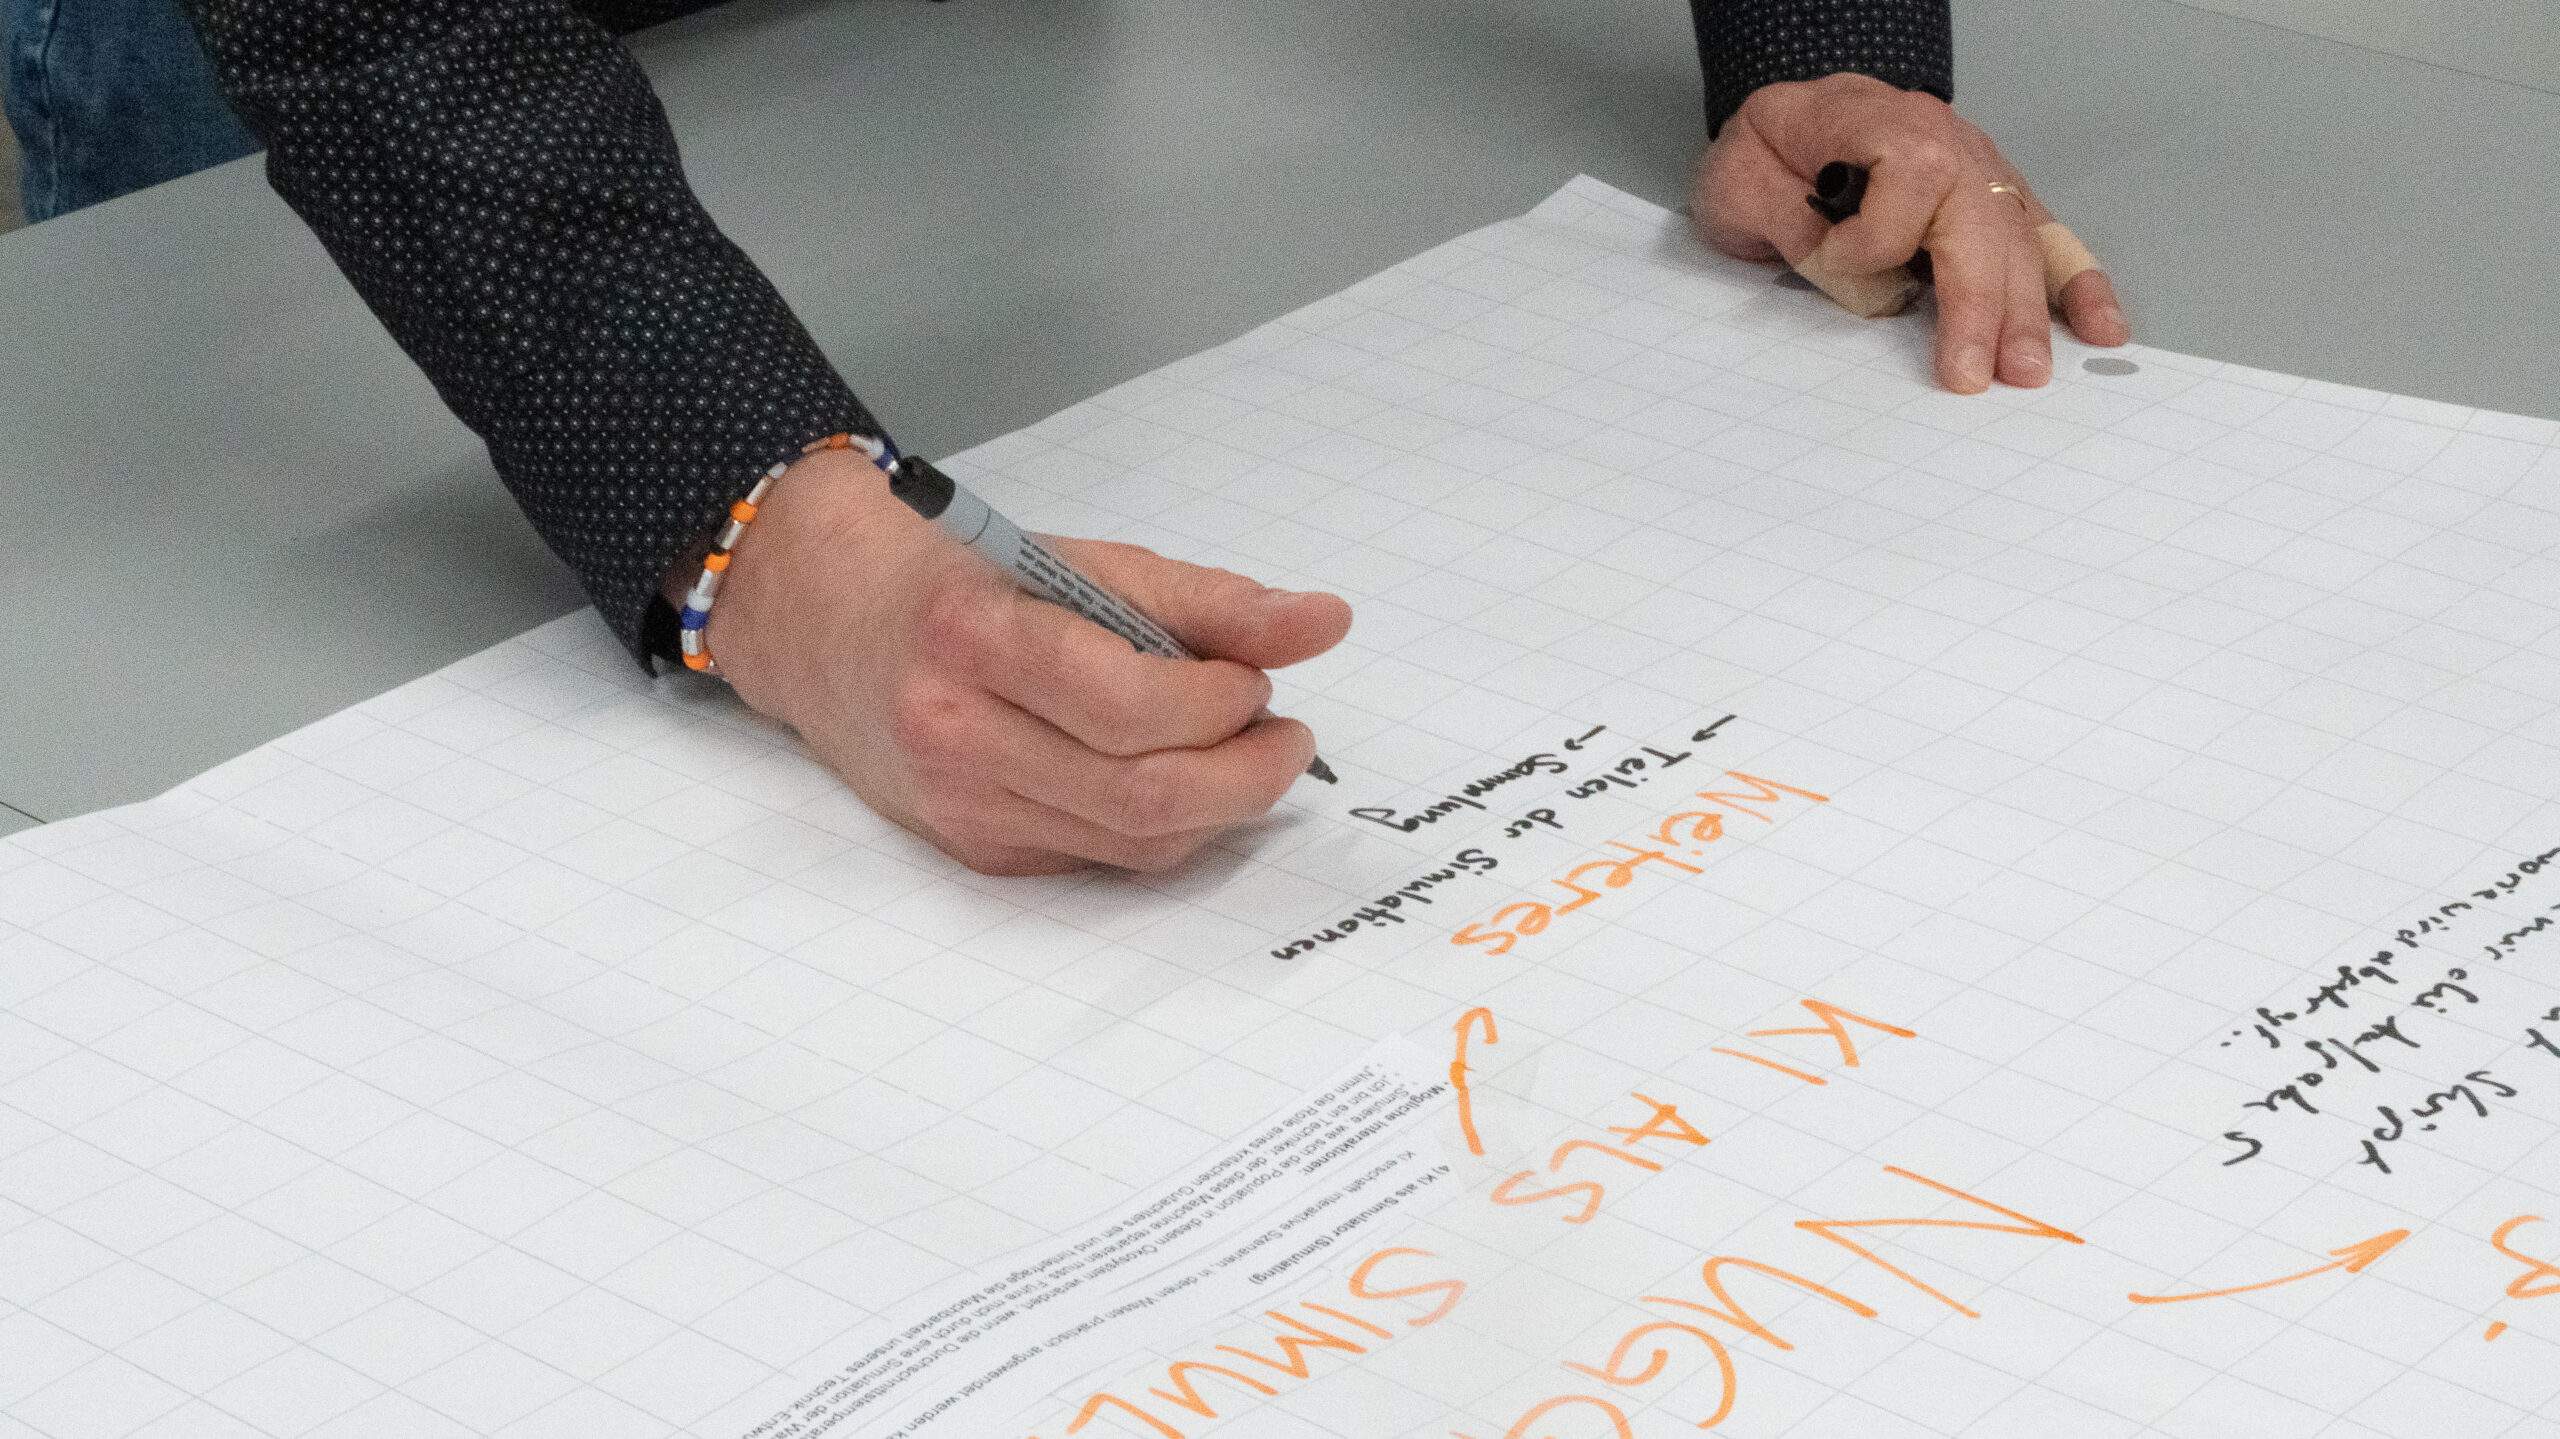 Weiteres
→ Teilen der Simulationen
→ Sammlung
KI ALS SIMUL
NUGG
Skript
wird
4) KI als Simulator (Simulating)
KI erschafft interaktive Szenarien, in denen Wissen praktisch angewendet werden k
• Mögliche Interaktionen:
"Simuliere, wie sich die Population in diesem Ökosystem verändert, wenn die Durchschnittstempera
"Ich bin ein Techniker, der diese Maschine reparieren muss. Führe mich durch eine Simulation der Wa
"Nimm die Rolle eines kritischen Gutachters ein und hinterfrage die Machbarkeit unseres Technik-Entwu